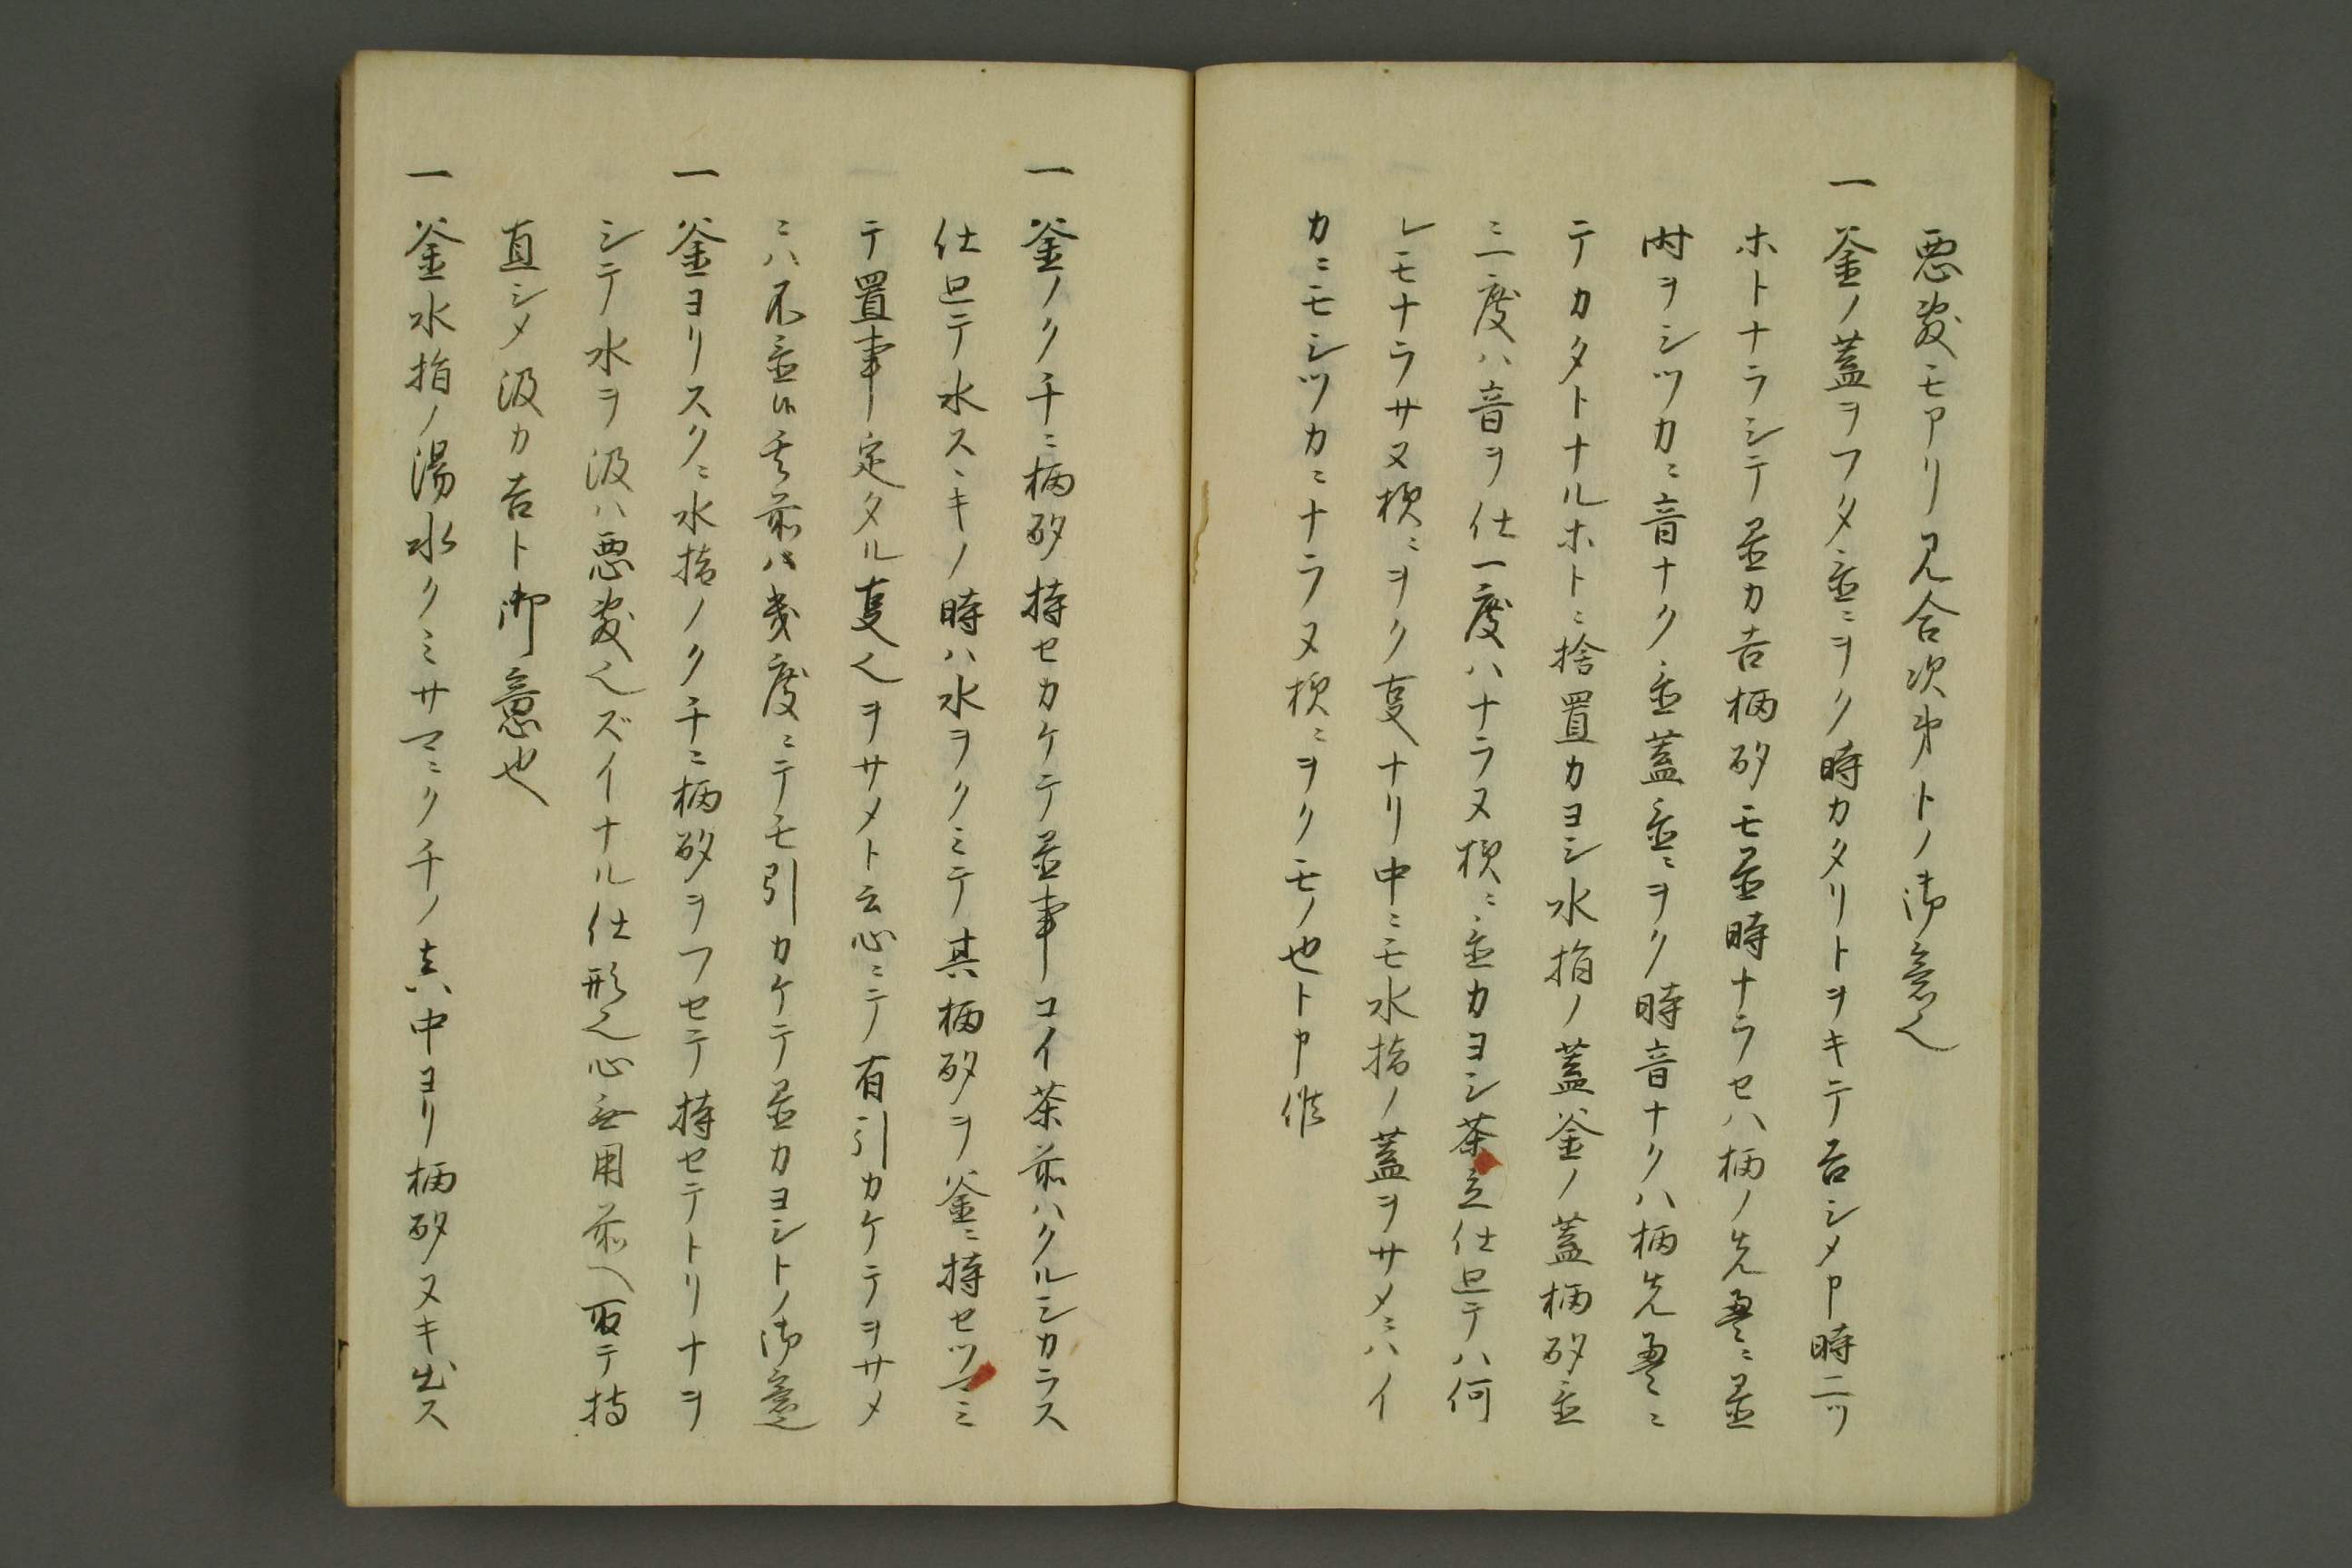 悪敷モアリ見合次第トノ御意也
一釜ノ蓋ヲフタ置ニヲク時カタリトヲキテ吉シメ申時二ツ
ホトナラシテ置カ吉柄杓モ置時ナラセハ柄ノ先畳ニ置
時ヲシツカニ音ナク置蓋置ニヲク時音ナクハ柄先畳ニ
テカタトナルホトニ捨置カヨシ水指ノ蓋釜ノ蓋柄杓置
ニ二度ハ音ヲ仕一度ハナラヌ様ニ置カヨシ茶立仕廻テハ何
レモナラサヌ様ニヲク事ナリ中ニモ水指ノ蓋ヲサメニハイ
カニモシツカニナラヌ様ニヲクモノ也ト申伝
一釜ノクチニ柄杓持セカケテ置事コイ茶前ハクルシカラス
仕廻テ水スヽキノ時ハ水ヲクミテ其柄杓ヲ釜ニ持セツマミ
テ置事定タル事也ヲサメト云心ニテ有引カケテヲサメ
ニハ不置候其前ハ幾度ニテモ引カケテ置カヨシトノ御意也
一釜ヨリスクニ水指ノクチニ柄杓ヲフセテ持セテトリナヲ
シテ水ヲ汲ハ悪敷也ズイナル仕形也心無用前ヘ取テ持
直シメ汲カ吉ト御意也
一釜水指ノ湯水クミサマニクチノ真中ヨリ柄杓ヌキ出ス